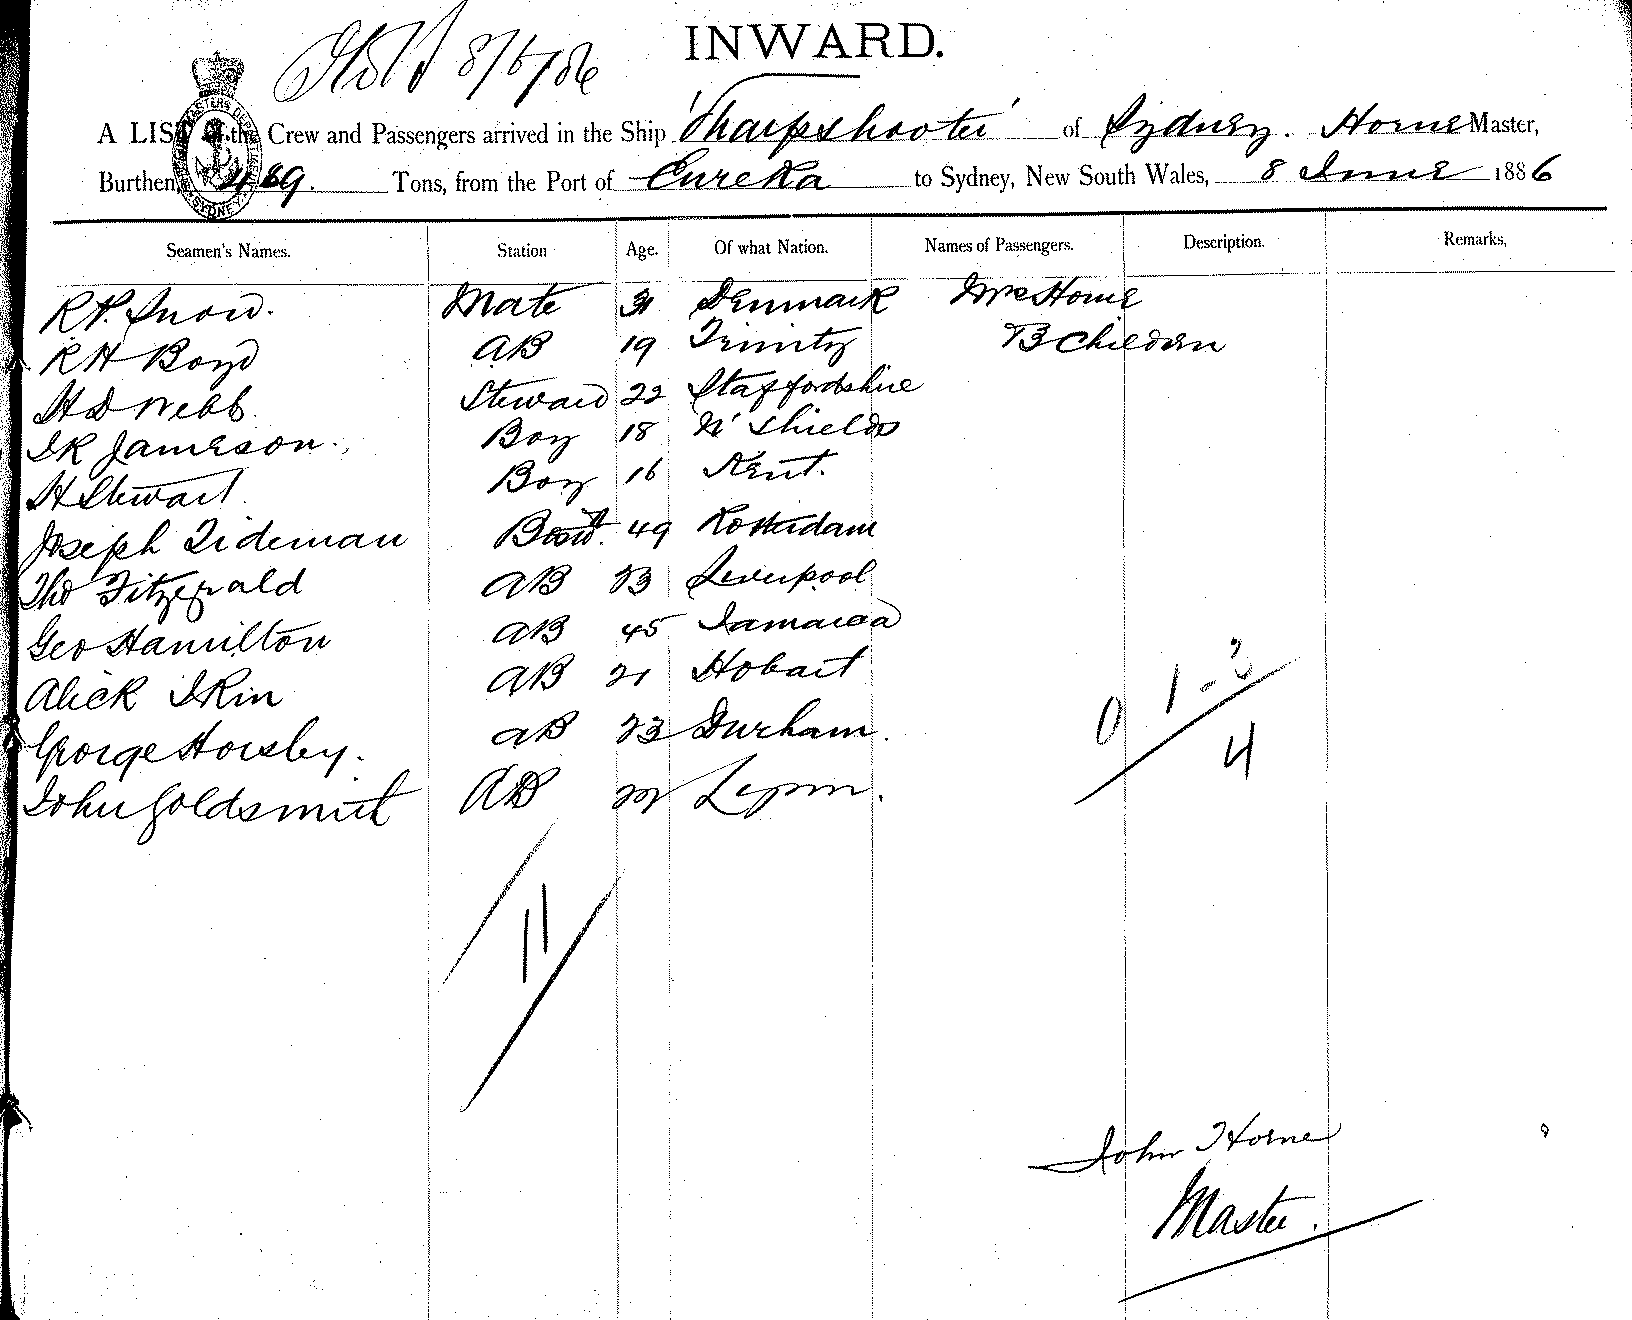 8/6/86
INWARD.
A LIST of the Crew and Passengers arrived in the Ship 'Sharpshooter' of Sydney. Horne Master,
Burthen, 489. Tons, from the Port of Eureka to Sydney, New South Wales, 8 June 1886
Seamen's Names. Station Age. Of what Nation. Names of Passengers. Description. Remarks,
R P. Snow. Mate 31 Denmark Mrs Horne
R H Boyd AB 19 Trinity 3 Children
H D Webb. Steward 22 Staffordshire
J R Jameson. Boy 18 N' Shields
H Stewart. Boy 16 Kent.
Joseph Tideman 49 Rotterdam
Tho Fitzgerald AB 23 Liverpool
Geo Hamilton AB 45 Jamaica
Alick Ikin AB 21 Hobart
George Horsley. AB 23 Durham.
John Goldsmith AB Lynn.
0 1-3
4
11
John Horne
Master.